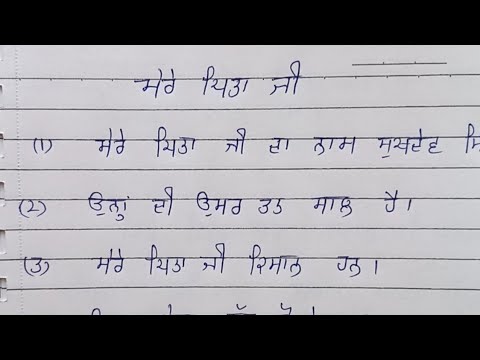 ਮੇਰੇ ਪਿਤਾ ਜੀ
(1) ਮੇਰੇ ਪਿਤਾ ਜੀ ਦਾ ਨਾਮ ਸੁਖਦੇਵ ਸਿ
(2) ਉਨ੍ਹਾਂ ਦੀ ਉਮਰ ਸਾਲ ਹੈ।
(3) ਮੇਰੇ ਪਿਤਾ ਜੀ ਕਿਸਾਨ ਹਨ।